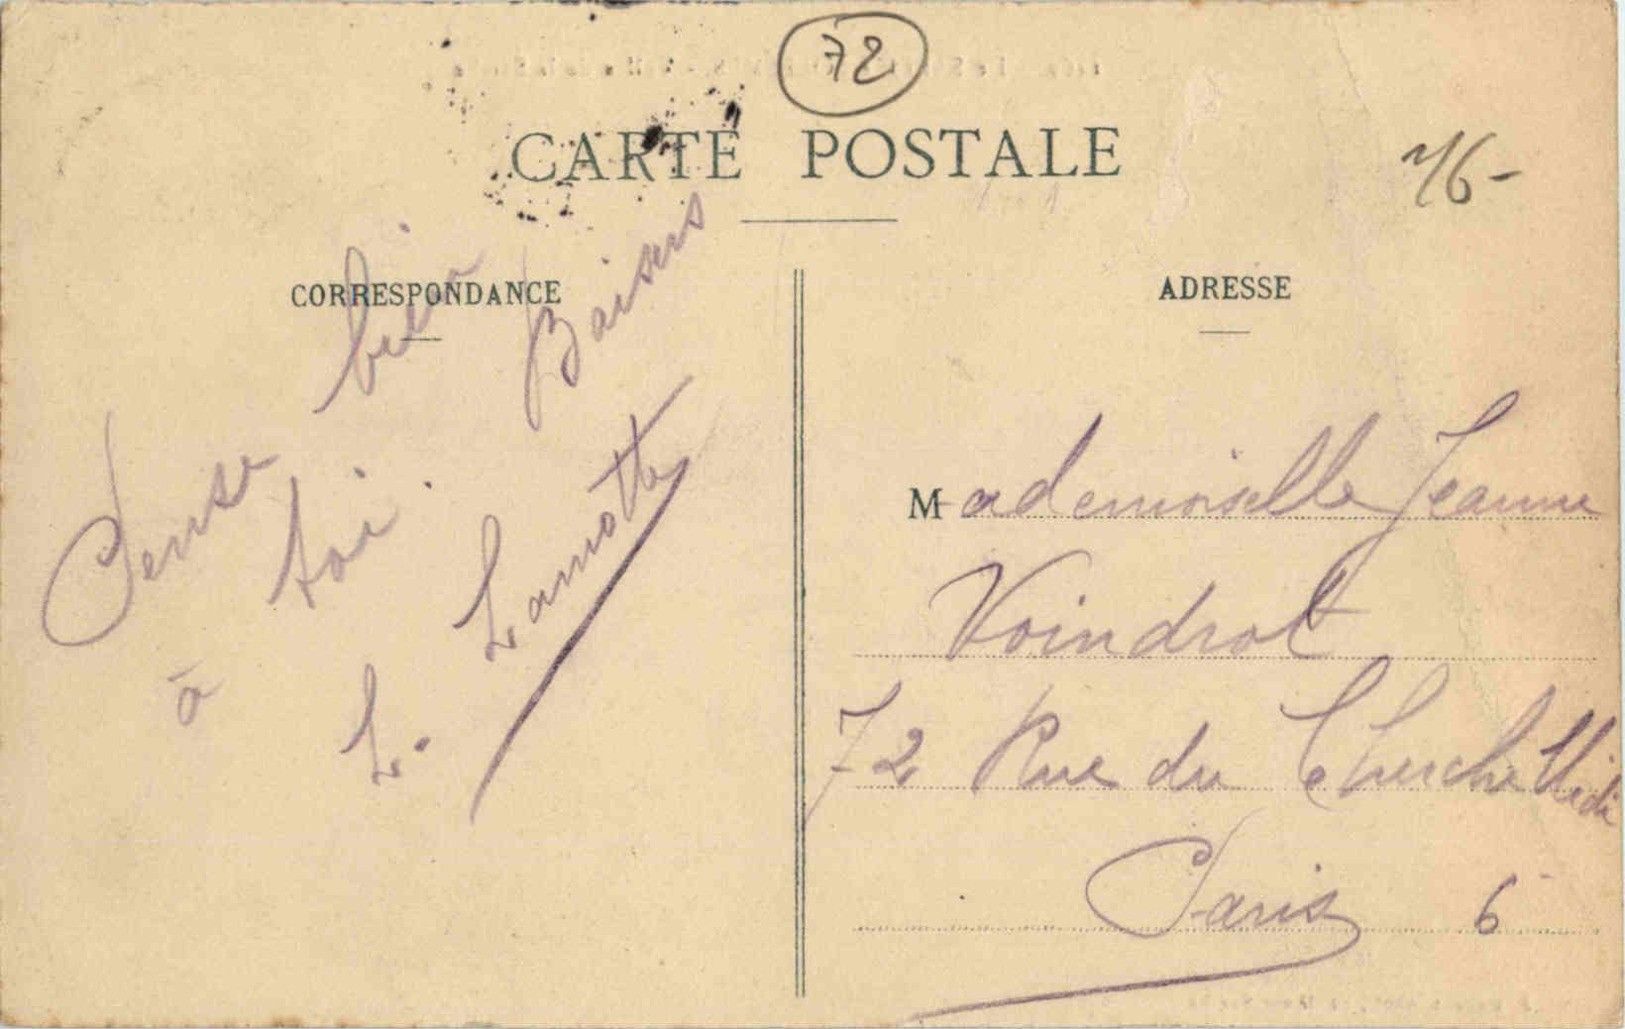 72
CARTE POSTALE
76-
CORRESPONDANCE
Pense bien
à toi. Baisers
L. Lamotte
ADRESSE
Mademoiselle Jeanne
Voindrot
72 Rue du Cherche Midi
Paris 6